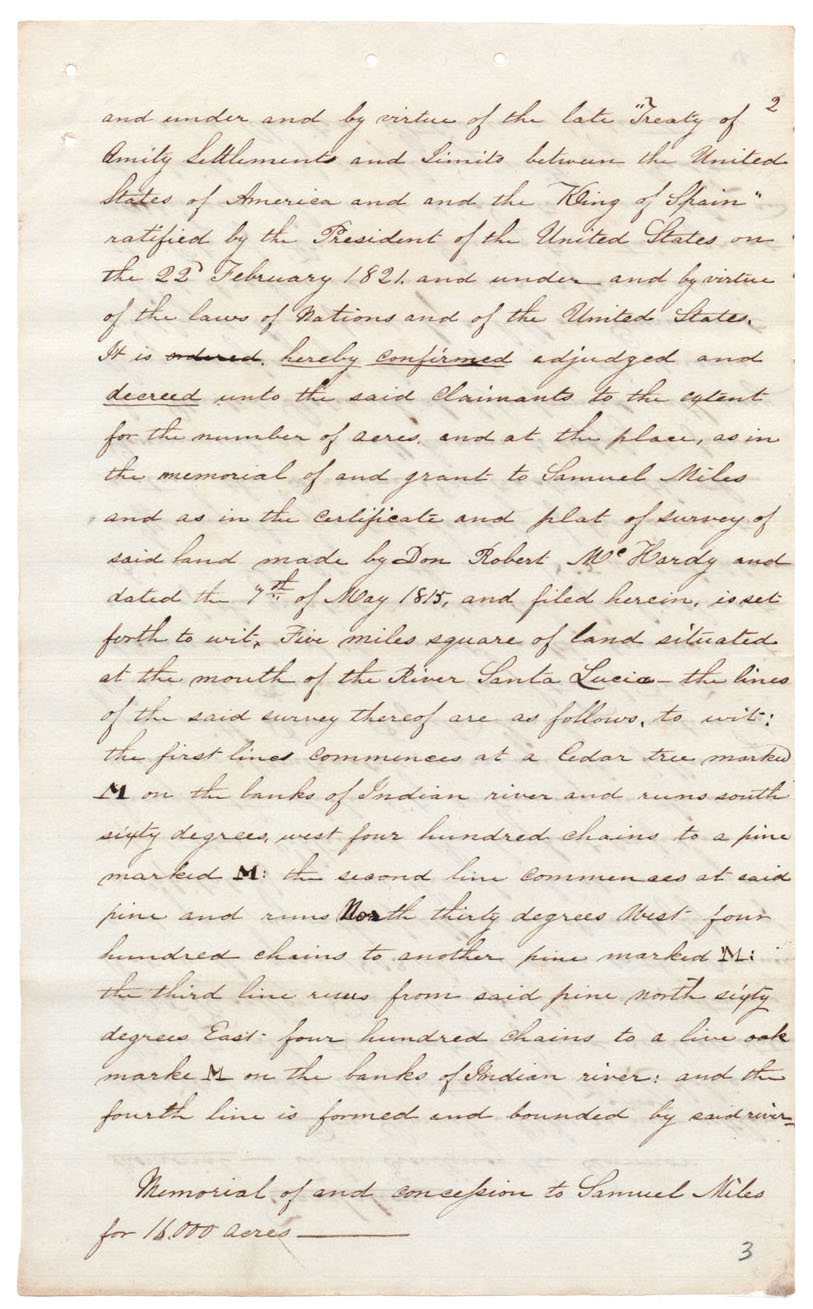 2
and under and by virtue of the late "Treaty of
Amity Settlements and Limits between the United
States of America and and the King of Spain"
ratified by the President of the United States on
the 22d February 1821. and under and by virtue
of the laws of Nations and of the United States.
It is ordered. hereby confirmed adjudged and
decreed unto the said Claimants to the extent
for the number of acres, and at the place, as in
the memorial of and grant to Samuel Miles
and as in the certificate and plat of survey of
said land made by Don Robert McHardy and
dated the 7th of May 1815, and filed herein, is set
forth to wit, Five miles square of land situated
at the mouth of the River Santa Lucia - the lines
of the said survey thereof are as follows, to wit:
the first lines commences at a Cedar tree marked
M on the banks of Indian river and runs south
sixty degrees, west four hundred chains to a pine
marked M: the second line commences at said
pine and runs North thirty degrees West four
hundred chains to another pine marked M:
the third line runs from said pine north sixty
degrees East four hundred chains to a live oak
marke M on the banks of Indian river: and the
fourth line is formed and bounded by said river
Memorial of and concession to Samuel Miles
for 16.000 acres
3